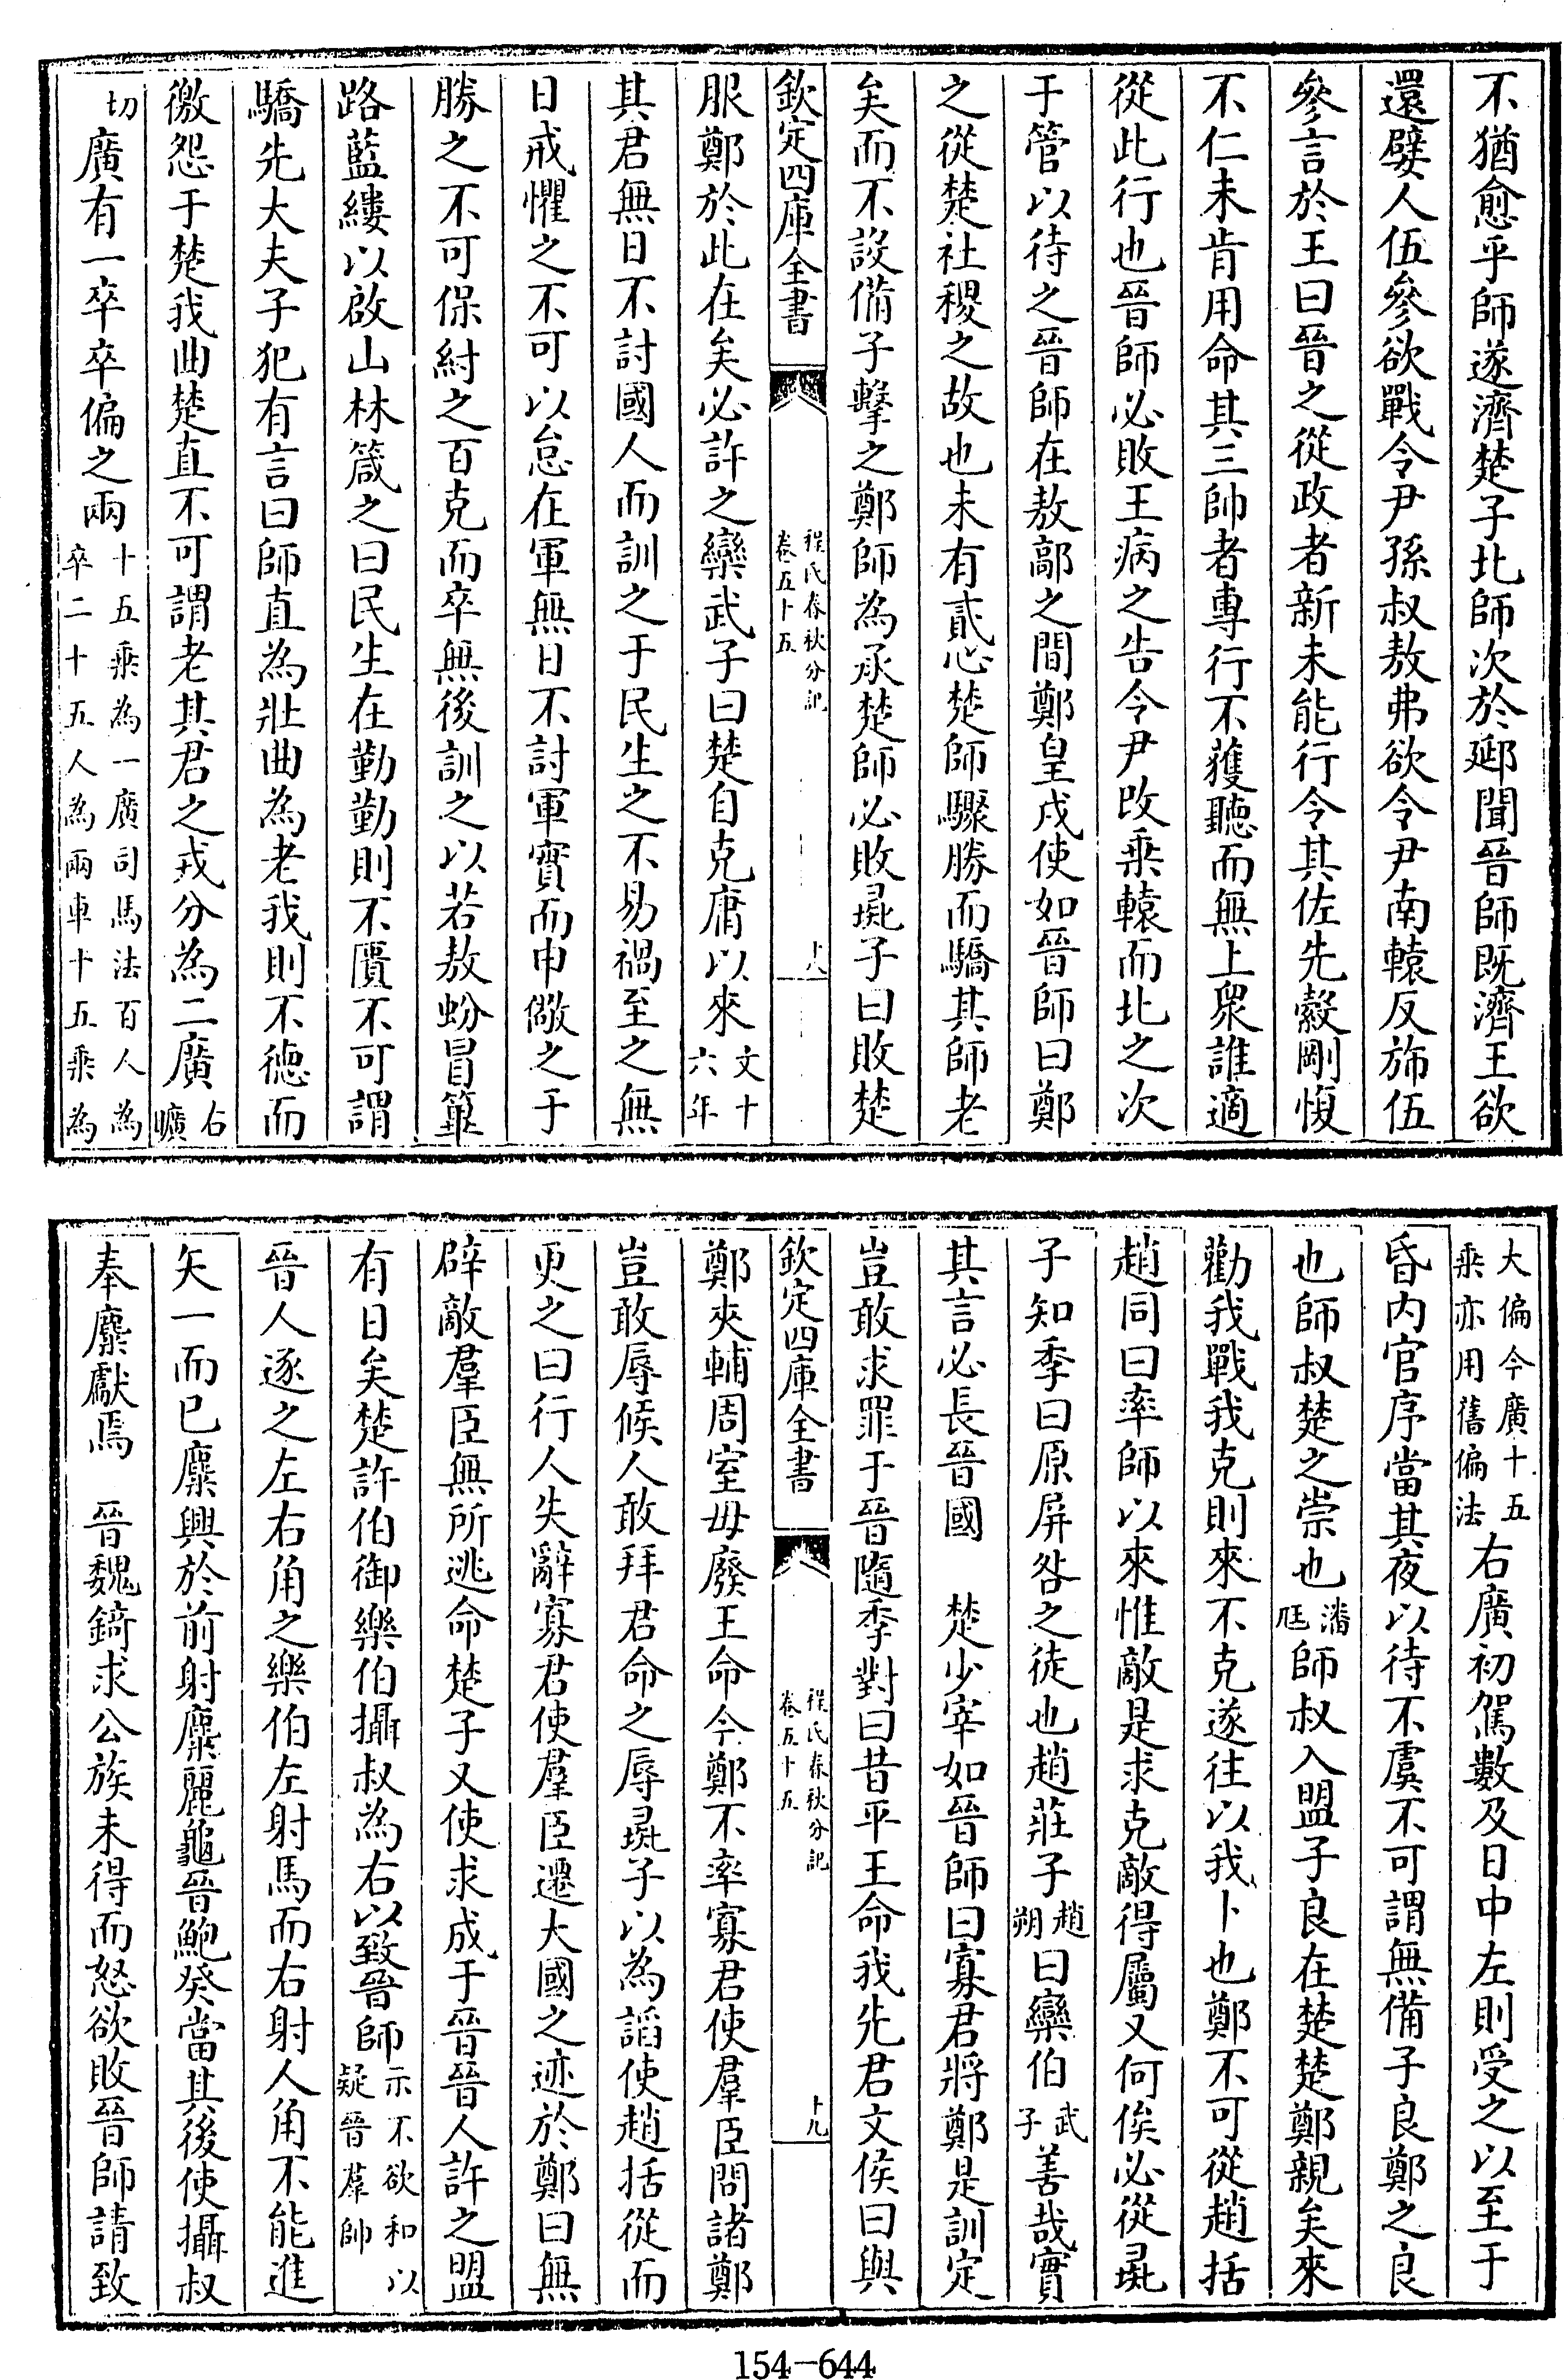 不猶愈乎師遂濟楚子北師次於郔聞晉師既濟王欲
還嬖人伍參欲戰令尹孫叔敖弗欲令尹南轅反斾伍
參言於王曰晉之從政者新未能行令其佐先縠剛愎
不仁未肯用命其三帥者專行不獲聽而無上衆誰適
從此行也晉師必敗王病之告令尹改乗轅而北之次
于管以待之晉師在敖鄗之間鄭皇戌使如晉師曰鄭
之從楚社稷之故也未有貳心楚師驟勝而驕其師老
矣而不設備子擊之鄭師為承楚師必敗彘子曰敗楚
欽定四庫全書
程氏春秋分記
卷五十五
十八
服鄭於此在矣必許之欒武子曰楚自克庸以來文十
六年
其君無日不討國人而訓之于民生之不易禍至之無
日戒懼之不可以怠在軍無日不討軍實而申儆之于
勝之不可保紂之百克而卒無後訓之以若敖蚡冒篳
路藍縷以啟山林箴之曰民生在勤勤則不匱不可謂
驕先大夫子犯有言曰師直為壯曲為老我則不德而
徼怨于楚我曲楚直不可謂老其君之戎分為二廣古
曠
切廣有一卒卒偏之兩十五乗為一廣司馬法百人為
卒二十五人為兩車十五乗為
大偏今廣十五
乗亦用舊偏法右廣初駕數及日中左則受之以至于
昏内官序當其夜以待不虞不可謂無備子良鄭之良
也師叔楚之崇也潘
尫師叔入盟子良在楚楚鄭親矣來
勸我戰我克則來不克遂往以我卜也鄭不可從趙括
趙同曰率師以來惟敵是求克敵得屬又何俟必從彘
子知季曰原屏咎之徒也趙莊子趙
朔曰欒伯武
子善哉實
其言必長晉國 楚少宰如晉師曰寡君將鄭是訓定
豈敢求罪于晉隨季對曰昔平王命我先君文侯曰與
欽定四庫全書
程氏春秋分記
卷五十五
十九
鄭夾輔周室毋廢王命今鄭不率寡君使羣臣問諸鄭
豈敢辱候人敢拜君命之辱彘子以為諂使趙括從而
更之曰行人失辭寡君使羣臣遷大國之迹於鄭曰無
辟敵羣臣無所逃命楚子又使求成于晉晉人許之盟
有日矣楚許伯御樂伯攝叔為右以致晉師示不欲和以
疑晉羣帥
晉人逐之左右角之樂伯左射馬而右射人角不能進
矢一而已麋興於前射麋麗龜晉鮑癸當其後使攝叔
奉麋獻焉 晉魏錡求公族未得而怒欲敗晉師請致
154-644